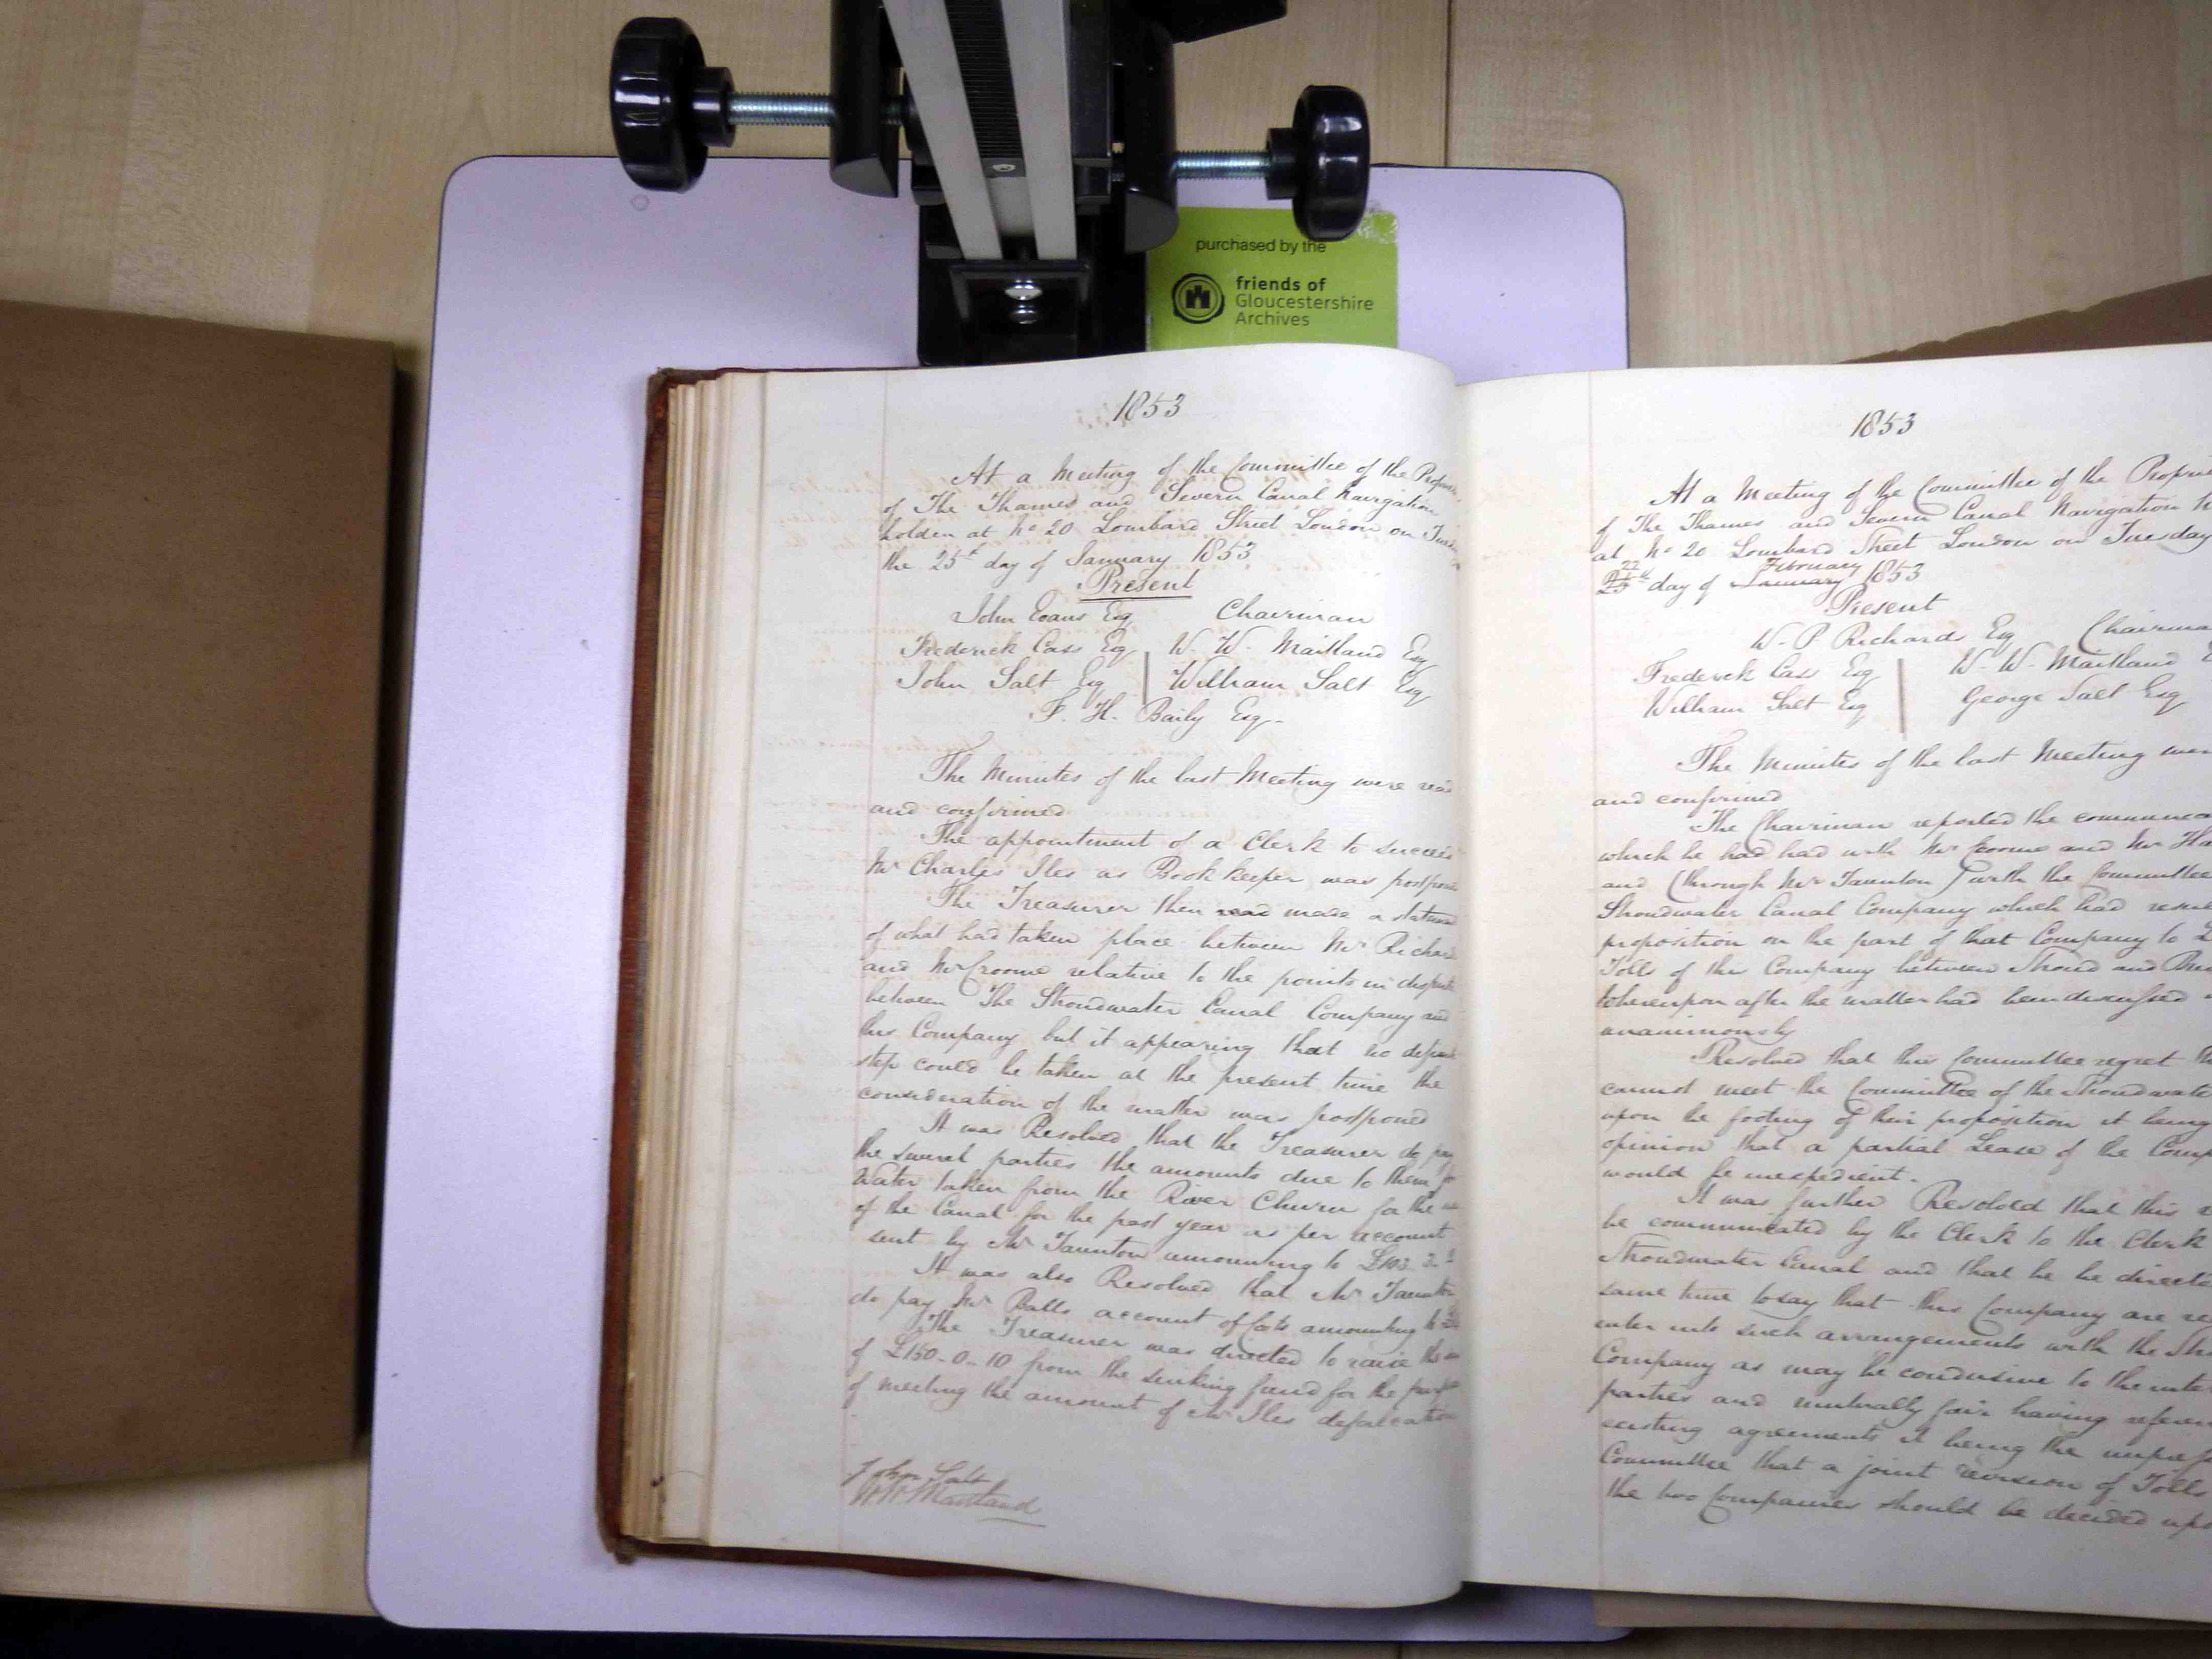 purchased by the
friends of
Gloucestershire
Archives
1853
At a Meeting of the Committee of the
of The Thames and Severn Canal Navigation
holden at No 20 Lombard Street London on
the 25th day of January 1853
Present
John Evans Esq Chairman
Frederick Cass Esq W. W. Maitland Esq
John Salt Esq William Salt Esq
F. H. Baily Esq
The Minutes of the last Meeting were read
and confirmed
The appointment of a Clerk to succeed
Mr Charles Iles as Book keeper was
The Treasurer then read made a
of what had taken place between Mr
and Mr Croome relative to the points in
between The Stroudwater Canal Company and
this Company but it appearing that no
step could be taken at the present time the
consideration of the matter was postponed
It was Resolved that the Treasurer do pay
the several parties the amounts due to them
Water taken from the River Churn for the
of the Canal for the past year as per account
sent by Mr Taunton amounting to
It was also Resolved that Mr Taunton
do pay Mr Balls account of costs amounting to
The Treasurer was directed to raise the
of £150-0-10 from the sinking fund for the
of meeting the amount of Mr Iles defalcation
John Salt
W W Maitland
1853
At a Meeting of the Committee of the
of The Thames and Severn Canal Navigation
at No 20 Lombard Street London on Tuesday
22 February
25th day of January 1853
Present
W. P. Richards Esq
Frederick Cass Esq W. W. Maitland
William Salt Esq George Salt Esq
The Minutes of the last Meeting
and confirmed
The Chairman reported the
which he had had with Mr Croome and Mr
and (through Mr Taunton) with the Committee
Stroudwater Canal Company which had
proposition on the part of that Company to
Tolls of this Company between Stroud and
whereupon after the matter had been discussed
unanimously
Resolved that this Committee regret
cannot meet the Committee of the
upon the footing of their proposition it being
opinion that a partial Lease of the
would be inexpedient.
It was further Resolved that this
be communicated by the Clerk to the Clerk
Stroudwater Canal and that he be
same time to say that this Company are
enter into such arrangements with the
Company as may be conducive to the
parties and mutually fair having
existing agreements it being the
Committee that a joint revision of Tolls
the two Companies should be decided